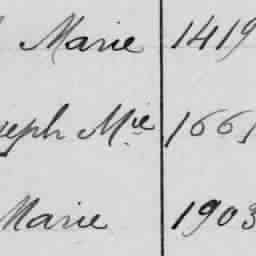 Marie 1419
seph Mie 1661
Marie 1903